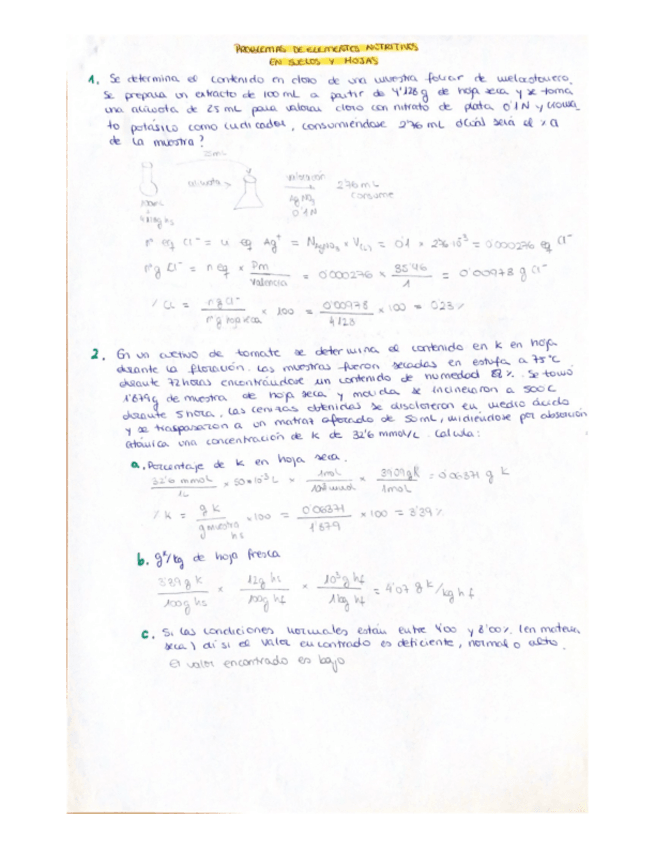 PROBLEMAS DE ELEMENTOS NUTRITIVOS
EN SUELOS Y HOJAS
1. Se determina el contenido en cloro de una muestra foliar de melocotonero.
Se prepara un extracto de 100 mL a partir de 4'128 g de hoja seca y se toma
una alícuota de 25 mL para valorar cloro con nitrato de plata 0'1N y croma
to potásico como indicador, consumiéndose 2'76 mL ¿Cuál será el %
de la muestra?
25mL
alícuota >
valoración
AgNO3
0'1N
2'76 mL
consume
100mL
nº eq Cl- = n eq Ag+ = NAgNO3 x V(L) = 0'1 x 2'76·10-3 = 0'000276 eq Cl-
nº g Cl- = n eq x Pm / Valencia = 0'000276 x 35'46 / 1 = 0'00978 g Cl-
% Cl = n g Cl- / nº g hoja seca x 100 = 0'00978 / 4'128 x 100 = 0'23 %
2. En un cultivo de tomate se determina el contenido en K en hoja
durante la floración. Las muestras fueron secadas en estufa a 75ºC
durante 72 horas encontrándose un contenido de humedad %. Se tomó
1'879g de muestra de hoja seca y molida, se incineraron a 500ºC
durante 5 hora, las cenizas obtenidas se disolvieron en medio ácido
y se traspasaron a un matraz aforado de 50 mL, midiéndose por absorción
atómica una concentración de K de 32'6 mmol/L. Calcula:
a. Porcentaje de K en hoja seca.
32'6 mmol / 1L x 50·10-3 L x 1mol / 103 mmol x 39'09 g K / 1mol = 0'06371 g K
% K = g K / g muestra hs x 100 = 0'06371 / 1'879 x 100 = 3'39 %
b. gK/kg de hoja fresca
3'39 g K / 100g hs x 12g hs / 100g hf x 103 g hf / 1kg hf = 4'07 g K/kg hf
c. Si las condiciones normales están entre 4'00 y %. (en materia
seca) di si el valor encontrado es deficiente, normal o alto.
El valor encontrado es bajo